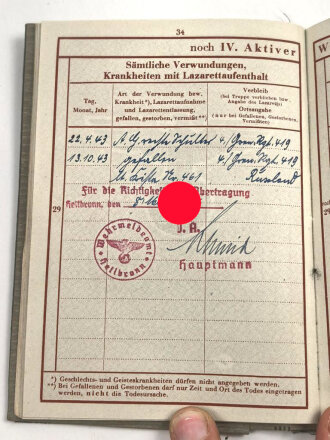 34
noch IV. Aktiver
Sämtliche Verwundungen,
Krankheiten mit Lazarettaufenthalt
Tag, Monat, Jahr
Art der Verwundung bezw. Krankheit*), Lazarettaufnahme und Lazarettentlassung, gefallen, gestorben, vermißt**)
Verbleib
(bei Truppe verblieben bzw. Angabe des Lazaretts)
Ortsangabe
(nur bei Gefallenen, Gestorbenen, Vermißten)
22.4.43 A. G. rechte Schulter 4/Gren.Rgt. 419
13.10.43 gefallen 4/Gren.Rgt. 419
Nr. 461 Russland
Für die Richtigkeit Übertragung
Heilbronn, den
29
I. A.
Wehrmeldeamt
Heilbronn
Hauptmann
*) Geschlechts- und Geisteskrankheiten dürfen nicht angegeben werden.
**) Bei Gefallenen und Gestorbenen darf nur Zeit und Ort des Todes eingetragen
werden, nicht die Todesursache.